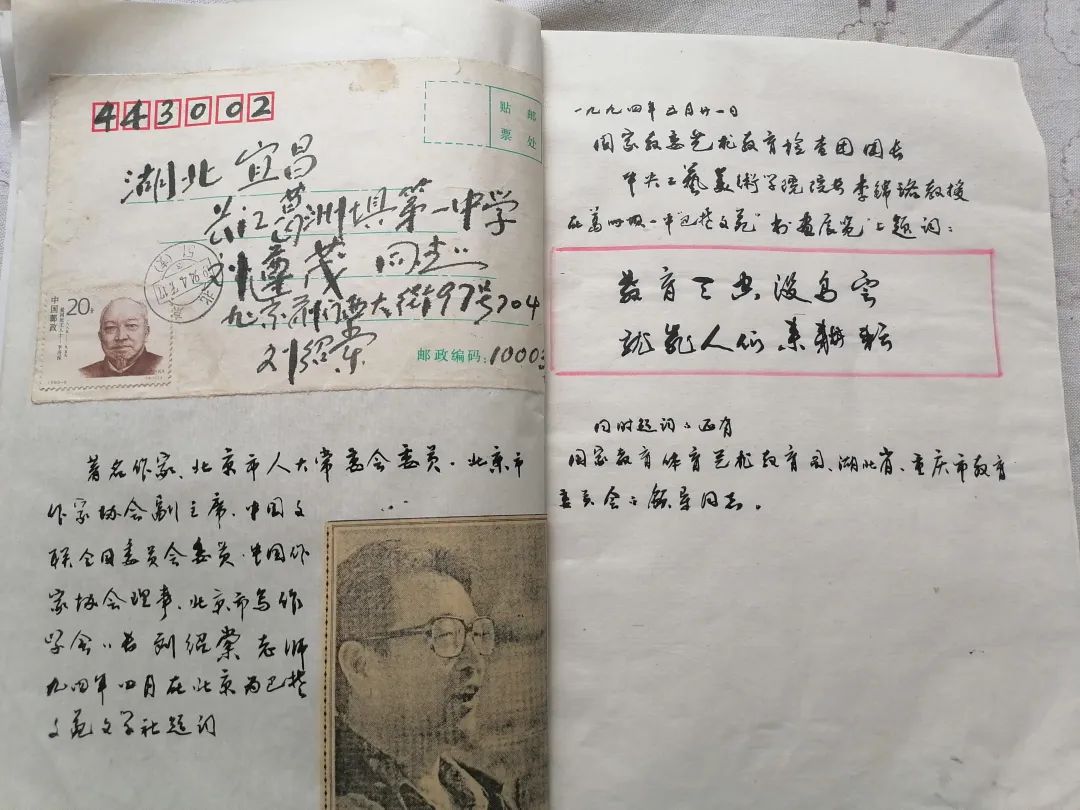 443002
贴邮
票处
湖北 宜昌
长江葛洲坝第一中学
刘尊茂 同志
北京前门西大街97号704
刘绍棠
邮政编码：1000
20分
中国邮政
著名作家、北京市人大常委会委员、北京市
作家协会副主席、中国文
联全国委员会委员、中国作
家协会理事、北京市写作
学会会长刘绍棠老师
九四年四月在北京为巴楚
文苑文学社题词
一九九四年五月廿一日
国家教委艺术教育检查团团长
中央工艺美术学院院长李锦璐教授
在葛洲坝一中巴楚文苑"书画展览"上题词：
教育
人们 来耕耘
同时题词的还有
国家教育体育艺术教育司、湖北省、重庆市教育
委员会的领导同志。